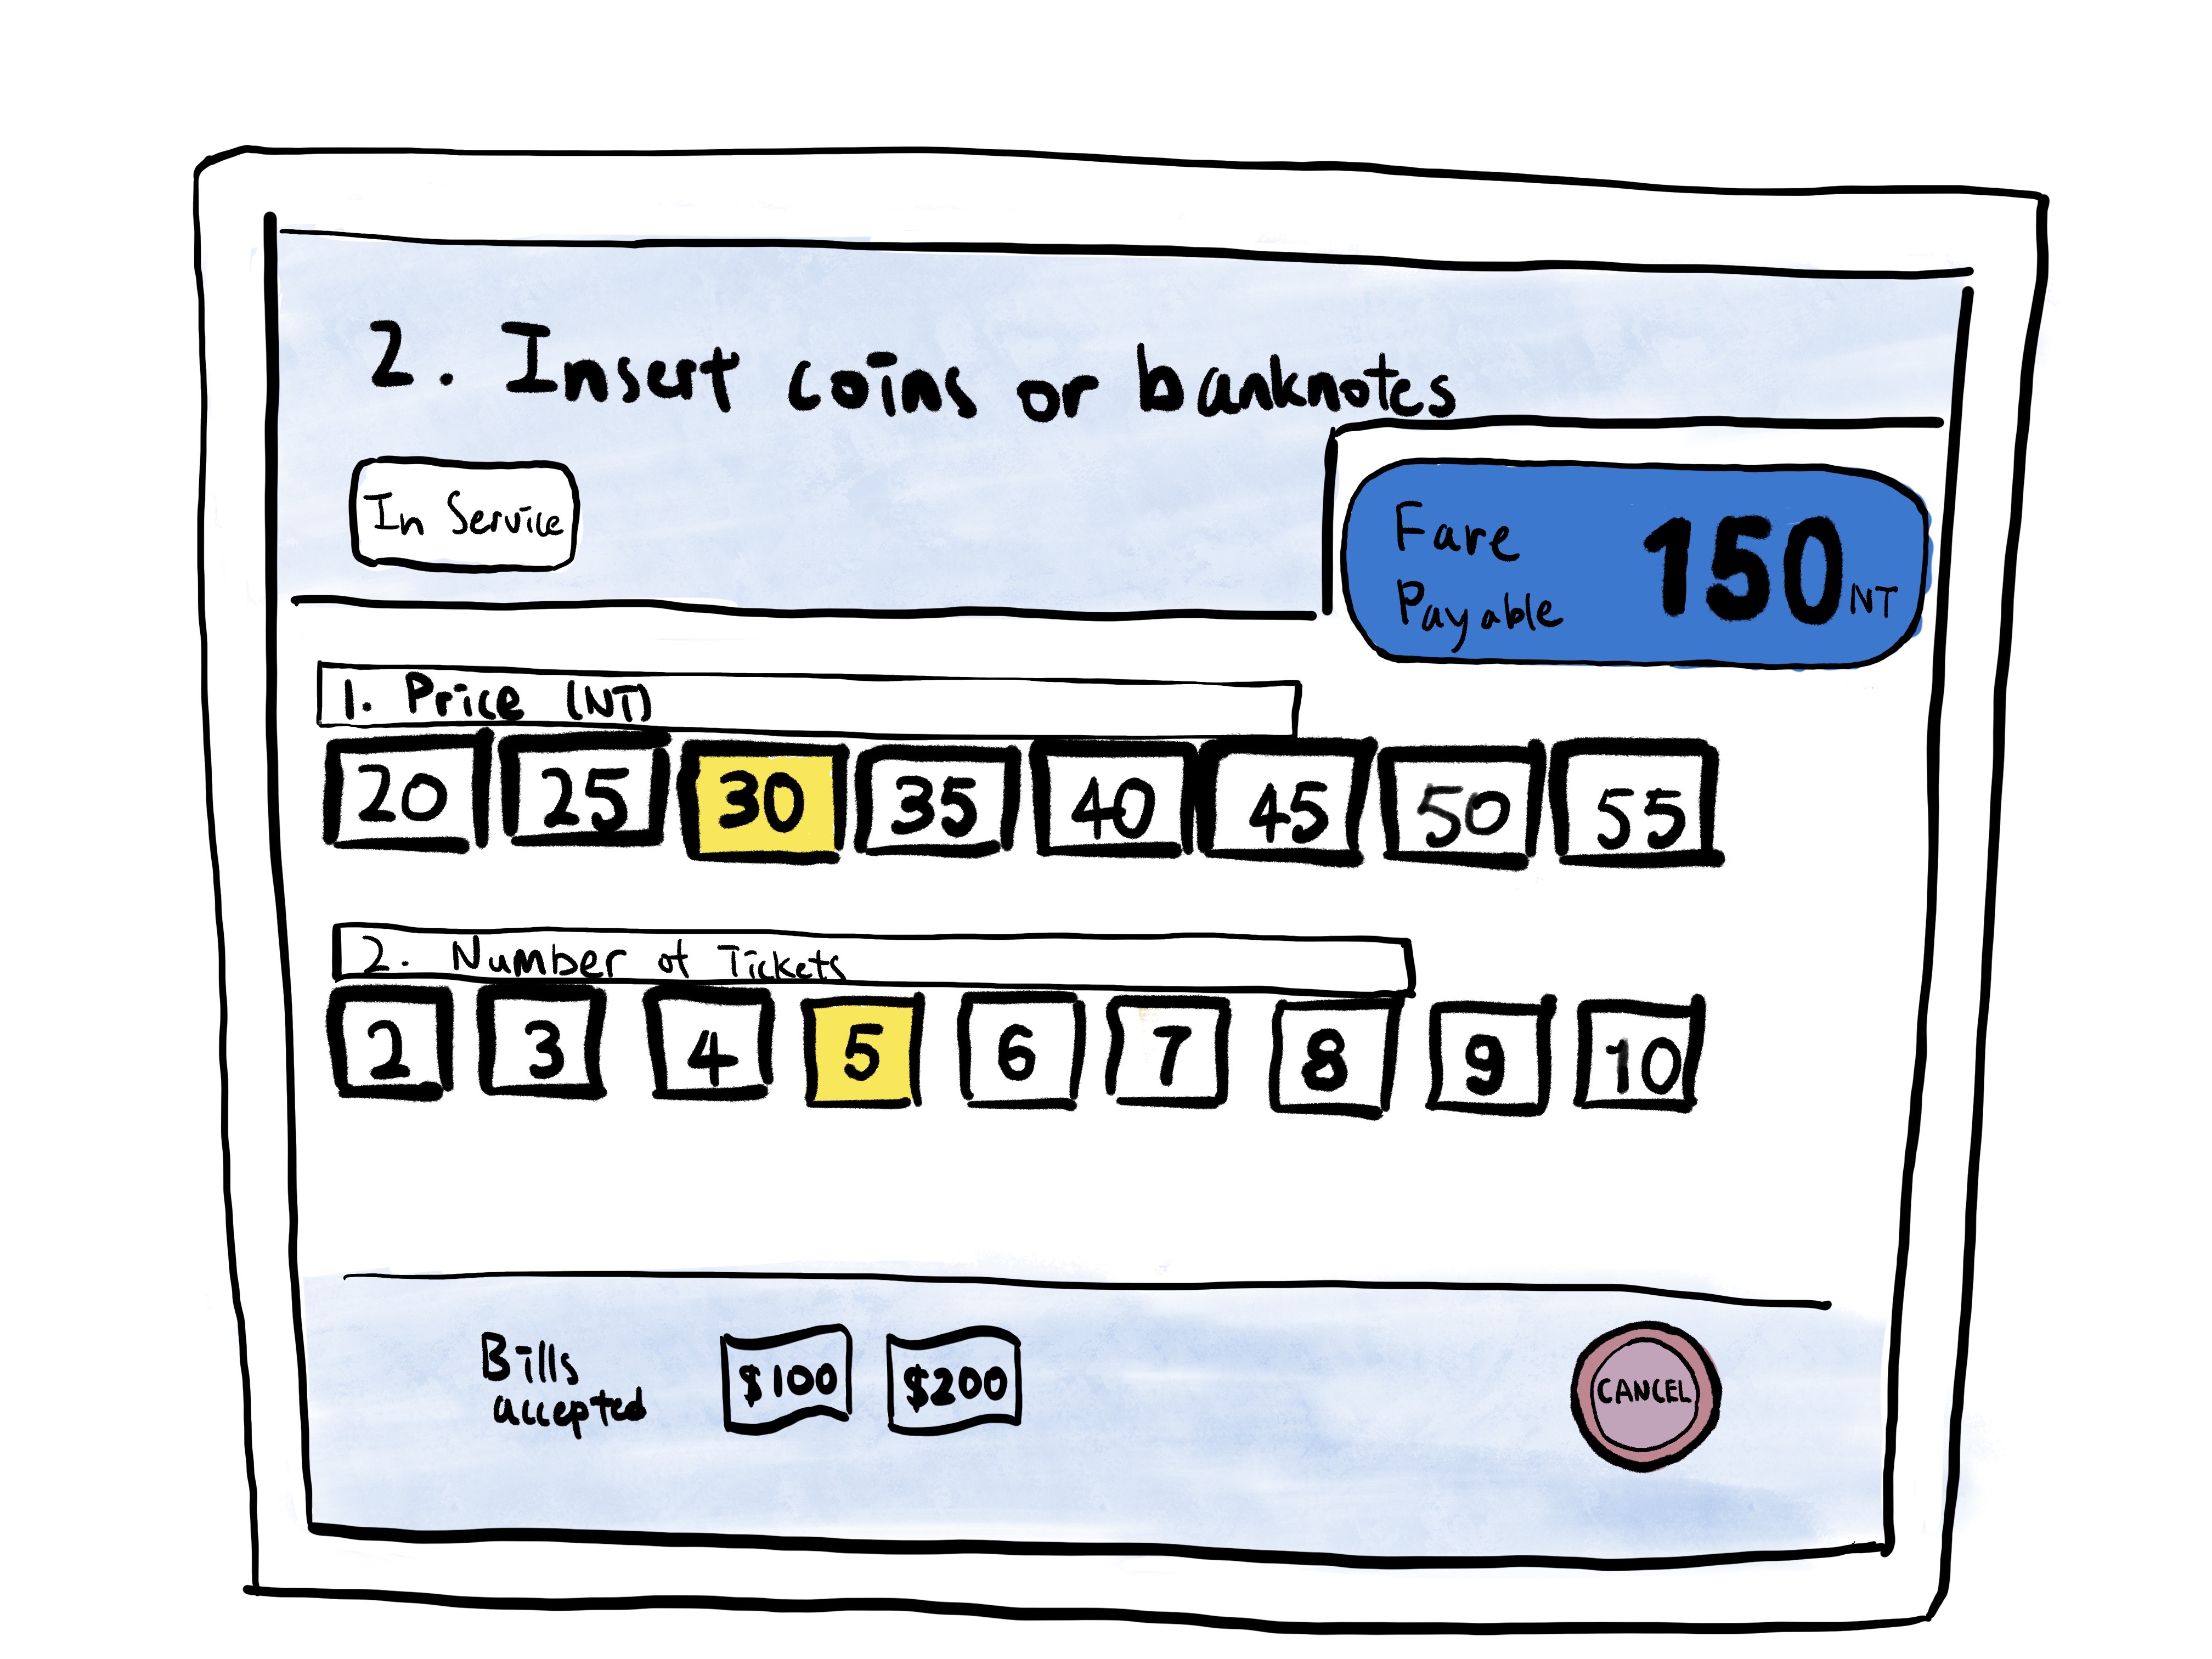 2. Insert coins or banknotes
In Service
Fare
Payable
150 NT
1. Price (NT)
20 25 30 35 40 45 50 55
2. Number of Tickets
2 3 4 5 6 7 8 9 10
Bills
accepted
$100 $200
CANCEL